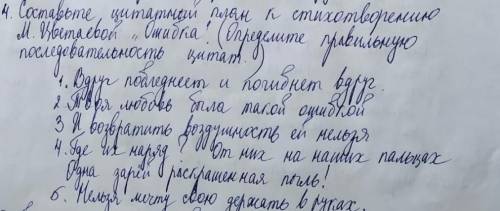 4. Составьте цитатный план к стихотворению
М. Цветаевой „Ошибка". (Определите правильную
последовательность цитат.)
1. Вдруг побледнеет и погибнет вдруг.
2. Твоя любовь была такой ошибкой
3 И возвратить воздушность ей нельзя
4. Где их наряд? От них на наших пальцах
Одна зарёй раскрашенная пыль!
5. Нельзя мечту свою держать в руках.